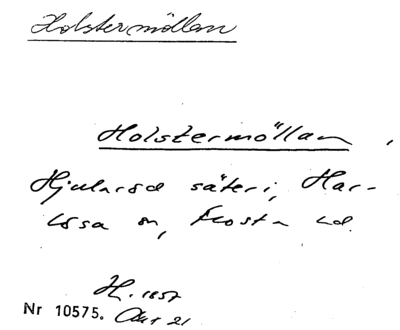 Holstermöllan
Holstermöllan,
Hjularöd säteri, Har-
lösa sn, Frosta hd.
H. 1857
Nr 10575. Akt 21